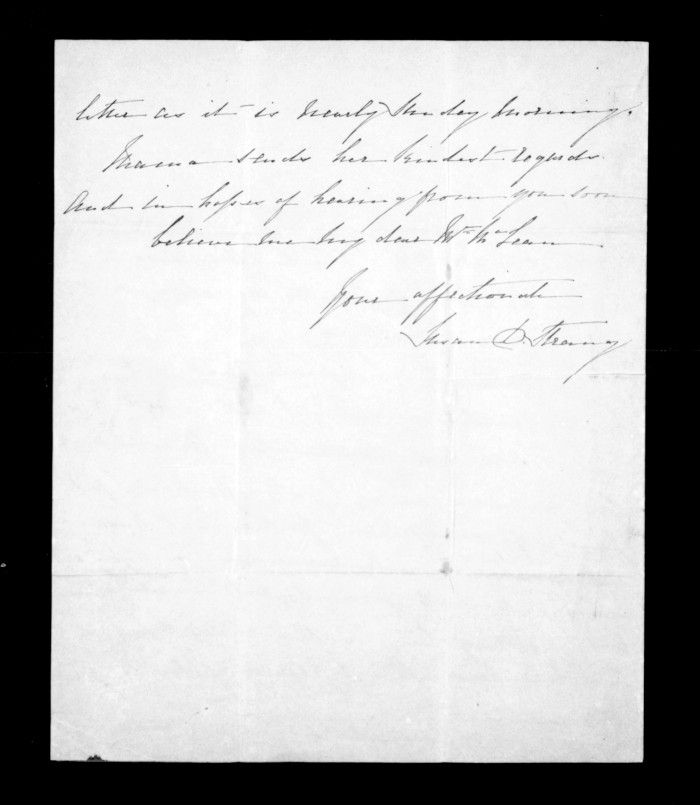 letter as it is nearly Sunday Morning.
Mama sends her kindest regards.
And in hopes of hearing from you soon
believe me my dear Mr. McLean
Your affectionate
Susan D. Strang